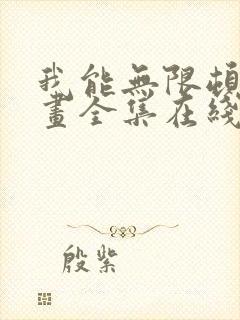 我能無限頓
畫全集在綫
殷紫